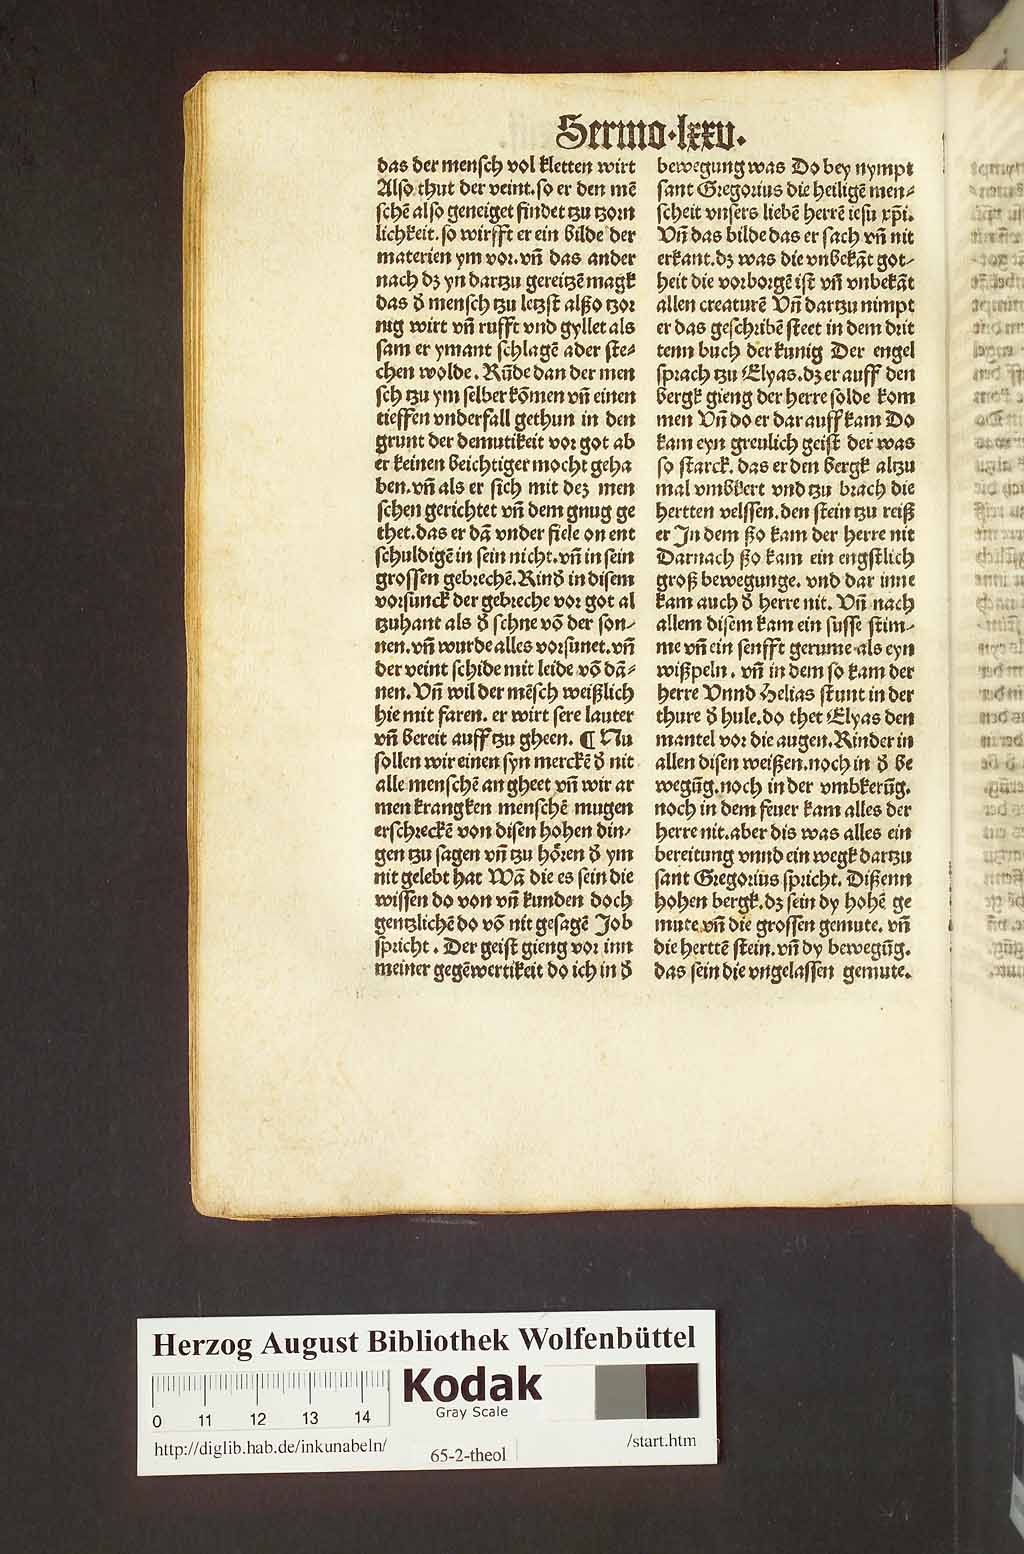 Sermo·lxxv·
das der mensch vol kletten wirt
Also thut der veint.so er den mē
schē also geneiget findet tzu tzorn
lichkeit.so wirfft er ein bilde der
materien ym vor.vn̄ das ander
nach dz yn dartzu gereitzē magk
das d̄ mensch tzu letzst alßo tzor
nig wirt vn̄ rufft vnd gyllet als
sam er ymant schlagē ader ste⸗
chen wolde. Rūde dan der men
sch tzu ym selber kōmen vn̄ einen
tieffen vnderfall gethun in den
grunt der demutikeit vor got ab
er keinen beichtiger mocht geha
ben.vn̄ als er sich mit dez men
schen gerichtet vn̄ dem gnug ge
thet.das er dā vnder fiele on ent
schuldigē in sein nicht.vn̄ in sein
grossen gebrechē.Rind̄ in disem
vorsunck der gebreche vor got al
tzuhant als d̄ schne vō der son⸗
nen.vn̄ wurde alles vorsunet.vn̄
der veint schide mit leide vō dā⸗
nen. Vn̄ wil der mēsch weißlich
hie mit faren. er wirt sere lauter
vn̄ bereit auff tzu gheen. ¶ Nu
sollen wir einen syn merckē d̄ nit
alle menschē an gheet vn̄ wir ar
men krangken menschē mugen
erschreckē von disen hohen din⸗
gen tzu sagen vn̄ tzu hoͤren d̄ ym
nit gelebt hat Wā die es sein die
wissen do von vn̄ kunden doch
gentzlichē do vō nit gesagē Job
spricht. Der geist gieng vor inn
meiner gegēwertikeit do ich in d̄
bewegung was Do bey nympt
sant Gregorius die heiligē men⸗
scheit vnsers liebē herrē iesu xp̄i.
Vn̄ das bilde das er sach vn̄ nit
erkant.dz was die vnbekāt got⸗
heit die vorborgē ist vn̄ vnbekāt
allen creaturē Vn̄ dartzu nimpt
er das geschribē steet in dem drit
tenn buch der kunig Der engel
sprach tzu Elyas.dz er auff den
bergk gieng der herre solde kom
men Vn̄ do er dar auff kam Do
kam eyn greulich geist der was
so starck. das er den bergk altzu
mal vmbkert vnd tzu brach die
hertten velssen.den stein tzu reiß
er In dem ßo kam der herre nit
Darnach ßo kam ein engstlich
groß bewegunge. vnd dar inne
kam auch d̄ herre nit. Vn̄ nach
allem disem kam ein susse stim⸗
me vn̄ ein senfft gerume als eyn
wißpeln. vn̄ in dem so kam der
herre Vnnd Helias stunt in der
thure d̄ hule.do thet Elyas den
mantel vor die augen.Rinder in
allen disen weißen.noch in d̄ be
wegūg.noch in der vmbkerūg.
noch in dem feuer kam alles der
herre nit.aber dis was alles ein
bereitung vnnd ein wegk dartzu
sant Gregorius spricht. Dißenn
hohen bergk.dz sein dy hohē ge
mute.vn̄ die grossen gemute. vn̄
die herttē stein.vn̄ dy bewegūg.
das sein die vngelassen gemute.
Herzog August Bibliothek Wolfenbüttel
Kodak
Gray Scale
0 11 12 13 14
http://diglib.hab.de/inkunabeln/
65-2-theol
/start.htm